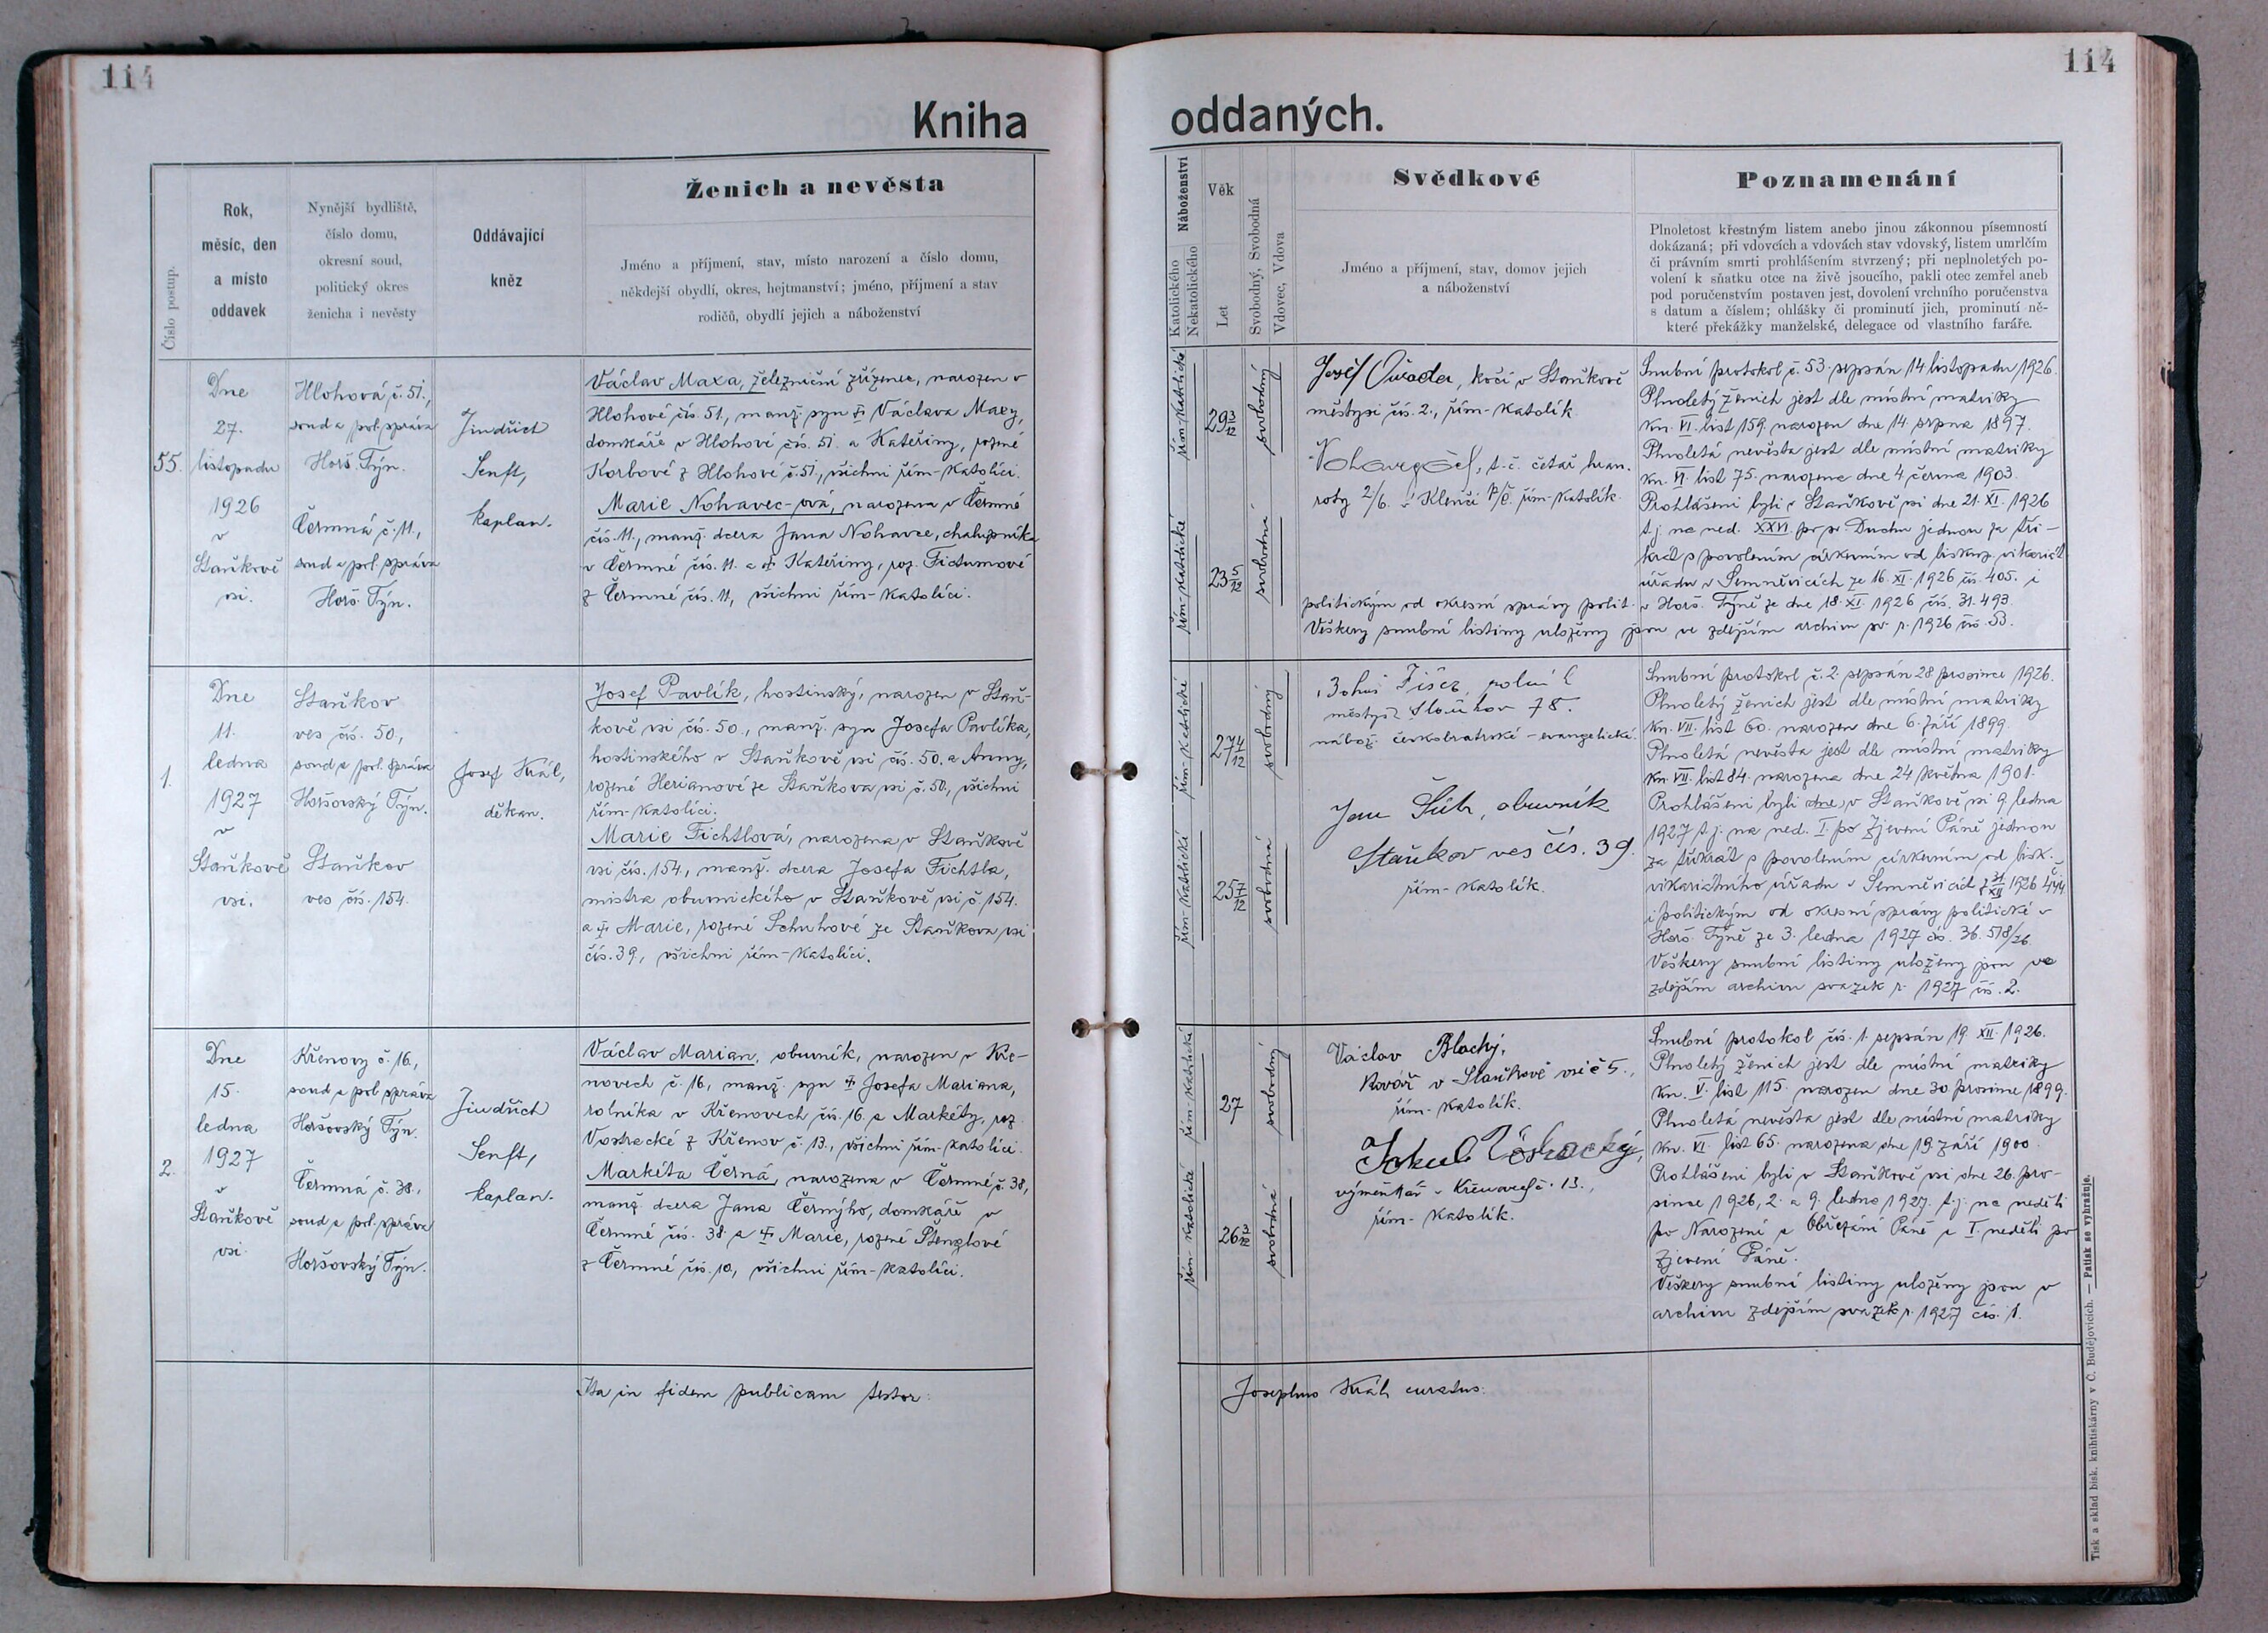 114
114
Kniha
oddaných.
Číslo postup.
Rok,
měsíc, den
a místo
oddavek
Nynější bydliště,
číslo domu,
okresní soud,
politický okres
ženicha i nevěsty
Oddávající
kněz
Ženich a nevěsta
Jméno a příjmení, stav, místo narození a číslo domu,
někdejší obydlí, okres, hejtmanství; jméno, příjmení a stav
rodičů, obydlí jejich a náboženství
Náboženství
Katolického
Nekatolického
Věk
Let
Svobodný, Svobodná
Vdovec, Vdova
Svědkové
Jméno a příjmení, stav, domov jejich
a náboženství
Poznamenání
Plnoletost křestným listem anebo jinou zákonnou písemností
dokázaná; při vdovcích a vdovách stav vdovský, listem umrlčím
či právním smrti prohlášením stvrzený; při neplnoletých po-
volení k sňatku otce na živě jsoucího, pakli otec zemřel aneb
pod poručenstvím postaven jest, dovolení vrchního poručenstva
s datum a číslem; ohlášky či prominutí jich, prominutí ně-
které překážky manželské, delegace od vlastního faráře.
55.
Dne
27.
listopadu
1926
v
Staňkově
vsi.
Hlohová č. 51.,
soud a pol. správa
Horš. Týn.
Čermná č. 11.,
soud a pol. správa
Horš. Týn.
Jindřich
Senft,
kaplan.
Václav Maxa, železniční zřízenec, narozen v
Hlohové čís. 51., manž. syn † Václava Maxy,
domkáře v Hlohové čís. 51. a Kateřiny, rozené
Korbové z Hlohové č. 51., všichni řím-katolíci.
Marie Nohavec-ová, narozena v Čermné
čís. 11., manž. dcera Jana Nohavce, chalupníka
v Čermné čís. 11. a † Kateřiny, roz. Fictumové
z Čermné čís. 11, všichni řím-katolíci.
řím-katolické
řím-katolické
29 3/12
23 5/12
svobodný
svobodná
Josef , kočí v Staňkově
městysi čís. 2., řím-katolík
t. č. četař hran.
roty 2/6. v Klenčí p/Č. řím-katolík.
Snubní protokol č. 53. sepsán 14 listopadu 1926.
Plnoletý ženich jest dle místní matriky
kn. VI. list 159. narozen dne 14. srpna 1897.
Plnoletá nevěsta jest dle místní matriky
kn. VI. list 75. narozena dne 4 června 1903.
Prohlášeni byli v Staňkově vsi dne 21. XI. 1926
t. j. na ned. XXVI. po sv. Duchu jednou za tři-
krát s povolením církevním od biskup. vikariát.
úřadu v Semněvicích ze 16. XI. 1926 čís. 405. i
politickým od okresní správy polit. v Horš. Týně ze dne 18. XI. 1926 čís. 31.493.
Veškery snubní listiny uloženy jsou ve zdejším archivu sv. r. 1926 čís. 53.
1.
Dne
11.
ledna
1927
v
Staňkově
vsi.
Staňkov
ves čís. 50.,
soud a pol. správa
Horšovský Týn.
Staňkov
ves čís. 154.
Josef Král,
děkan.
Josef Pavlík, hostinský, narozen v Staň-
kově vsi čís. 50., manž. syn Josefa Pavlíka,
hostinského v Staňkově vsi čís. 50. a Anny,
rozené Herianové ze Staňkova vsi č. 50., všichni
řím-katolíci.
Marie Fichtlová, narozena v Staňkově
vsi čís. 154., manž. dcera Josefa Fichtla,
mistra obuvnického v Staňkově vsi č. 154.
a † Marie, rozené Schuhové ze Staňkova vsi
čís. 39., všichni řím-katolíci.
řím-katolické
řím-katolické
27 4/12
25 7/12
svobodný
svobodná
Fišer,
městys Staňkov 78.
nábož. českobratrské-evangelické.
Jan Šúh, obuvník
Staňkov ves čís. 39.
řím-katolík.
Snubní protokol č. 2. sepsán 28 prosince 1926.
Plnoletý ženich jest dle místní matriky
kn. VII. list 60. narozen dne 6. září 1899.
Plnoletá nevěsta jest dle místní matriky
kn. VII. list 84. narozena dne 24 května 1901.
Prohlášeni byli dne v Staňkově vsi 9. ledna
1927, t. j. na ned. I. po Zjevení Páně jednou
za třikrát s povolením církevním od bisk.
vikariátního úřadu v Semněvicích z 31/XII 1926 č. 444
i politickým od okresní správy politické v
Horš. Týně ze 3. ledna 1927 čís. 36.518/26.
Veškery snubní listiny uloženy jsou ve
zdejším archivu svazek r. 1927 čís. 2.
2.
Dne
15.
ledna
1927
v
Staňkově
vsi
Křenovy č. 16,
soud a pol. správa
Horšovský Týn.
Čermná č. 38.,
soud a pol. správa
Horšovský Týn.
Jindřich
Senft,
kaplan.
Václav Marian, obuvník, narozen v Kře-
novech č. 16, manž. syn † Josefa Mariana,
rolníka v Křenovech čís. 16. a Markéty, roz.
Vostracké z Křenov č. 13., všichni řím-katolíci.
Markéta Černá, narozena v Čermné č. 38,
manž. dcera Jana Černýho, domkáře v
Čermné čís. 38. a † Marie, rozené Štenglové
z Čermné čís. 10, všichni řím-katolíci.
řím-katolické
řím-katolické
27
26 3/12
svobodný
svobodná
Václav Blachý,
kovář v Staňkově vsi č 5.,
řím-katolík.
výměnkář v Křenovech č. 13.,
řím-katolík.
Snubní protokol čís. 1. sepsán 19. XII. 1926.
Plnoletý ženich jest dle místní matriky
kn. V. list 115. narozen dne 30 prosince 1899.
Plnoletá nevěsta jest dle místní matriky
kn. VI. list 65. narozena dne 19. září 1900.
Prohlášeni byli v Staňkově vsi dne 26. pro-
since 1926, 2. a 9. ledna 1927. t. j. na neděli
po Narození a Obřezání Páně a I. neděli po
Zjevení Páně.
Veškery snubní listiny uloženy jsou v
archivu zdejším svazek r. 1927 čís. 1.
Ita in fidem publicam testor:
Josephus Král curatus.
Tisk a sklad bisk. knihtiskárny v Č. Budějovicích. — Patisk se vyhražuje.